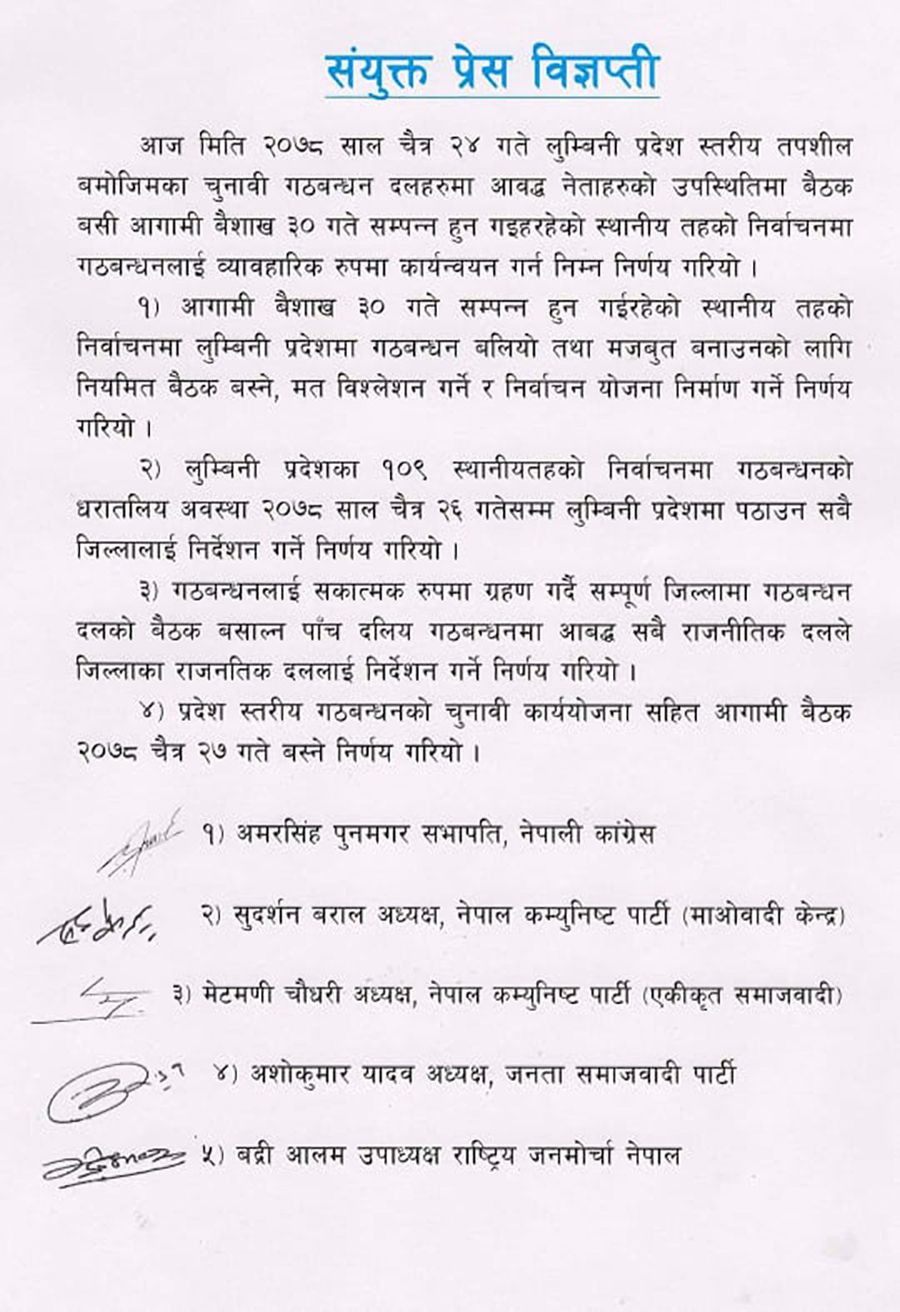 संयुक्त प्रेस विज्ञप्ती
आज मिति २०७८ साल चैत्र २४ गते लुम्बिनी प्रदेश स्तरीय तपशील
बमोजिमका चुनावी गठबन्धन दलहरुमा आवद्ध नेताहरुको उपस्थितिमा बैठक
बसी आगामी बैशाख ३० गते सम्पन्न हुन गइहरहेको स्थानीय तहको निर्वाचनमा
गठबन्धनलाई व्यावहारिक रुपमा कार्यन्वयन गर्न निम्न निर्णय गरियो ।
१) आगामी बैशाख ३० गते सम्पन्न हुन गईरहेको स्थानीय तहको
निर्वाचनमा लुम्बिनी प्रदेशमा गठबन्धन बलियो तथा मजबुत बनाउनको लागि
नियमित बैठक बस्ने, मत विश्लेशन गर्ने र निर्वाचन योजना निर्माण गर्ने निर्णय
गरियो ।
२) लुम्बिनी प्रदेशका १०९ स्थानीयतहको निर्वाचनमा गठबन्धनको
धरातलिय अवस्था २०७८ साल चैत्र २६ गतेसम्म लुम्बिनी प्रदेशमा पठाउन सबै
जिल्लालाई निर्देशन गर्ने निर्णय गरियो ।
३) गठबन्धनलाई सकात्मक रुपमा ग्रहण गर्दै सम्पूर्ण जिल्लामा गठबन्धन
दलको बैठक बसाल्न पाँच दलिय गठबन्धनमा आबद्ध सबै राजनीतिक दलले
जिल्लाका राजनतिक दललाई निर्देशन गर्ने निर्णय गरियो ।
४) प्रदेश स्तरीय गठबन्धनको चुनावी कार्ययोजना सहित आगामी बैठक
२०७८ चैत्र २७ गते बस्ने निर्णय गरियो ।
१) अमरसिंह पुनमगर सभापति, नेपाली कांग्रेस
२) सुदर्शन बराल अध्यक्ष, नेपाल कम्युनिष्ट पार्टी (माओवादी केन्द्र)
३) मेटमणी चौधरी अध्यक्ष, नेपाल कम्युनिष्ट पार्टी (एकीकृत समाजवादी)
४) अशोकुमार यादव अध्यक्ष, जनता समाजवादी पार्टी
५) बद्री आलम उपाध्यक्ष राष्ट्रिय जनमोर्चा नेपाल